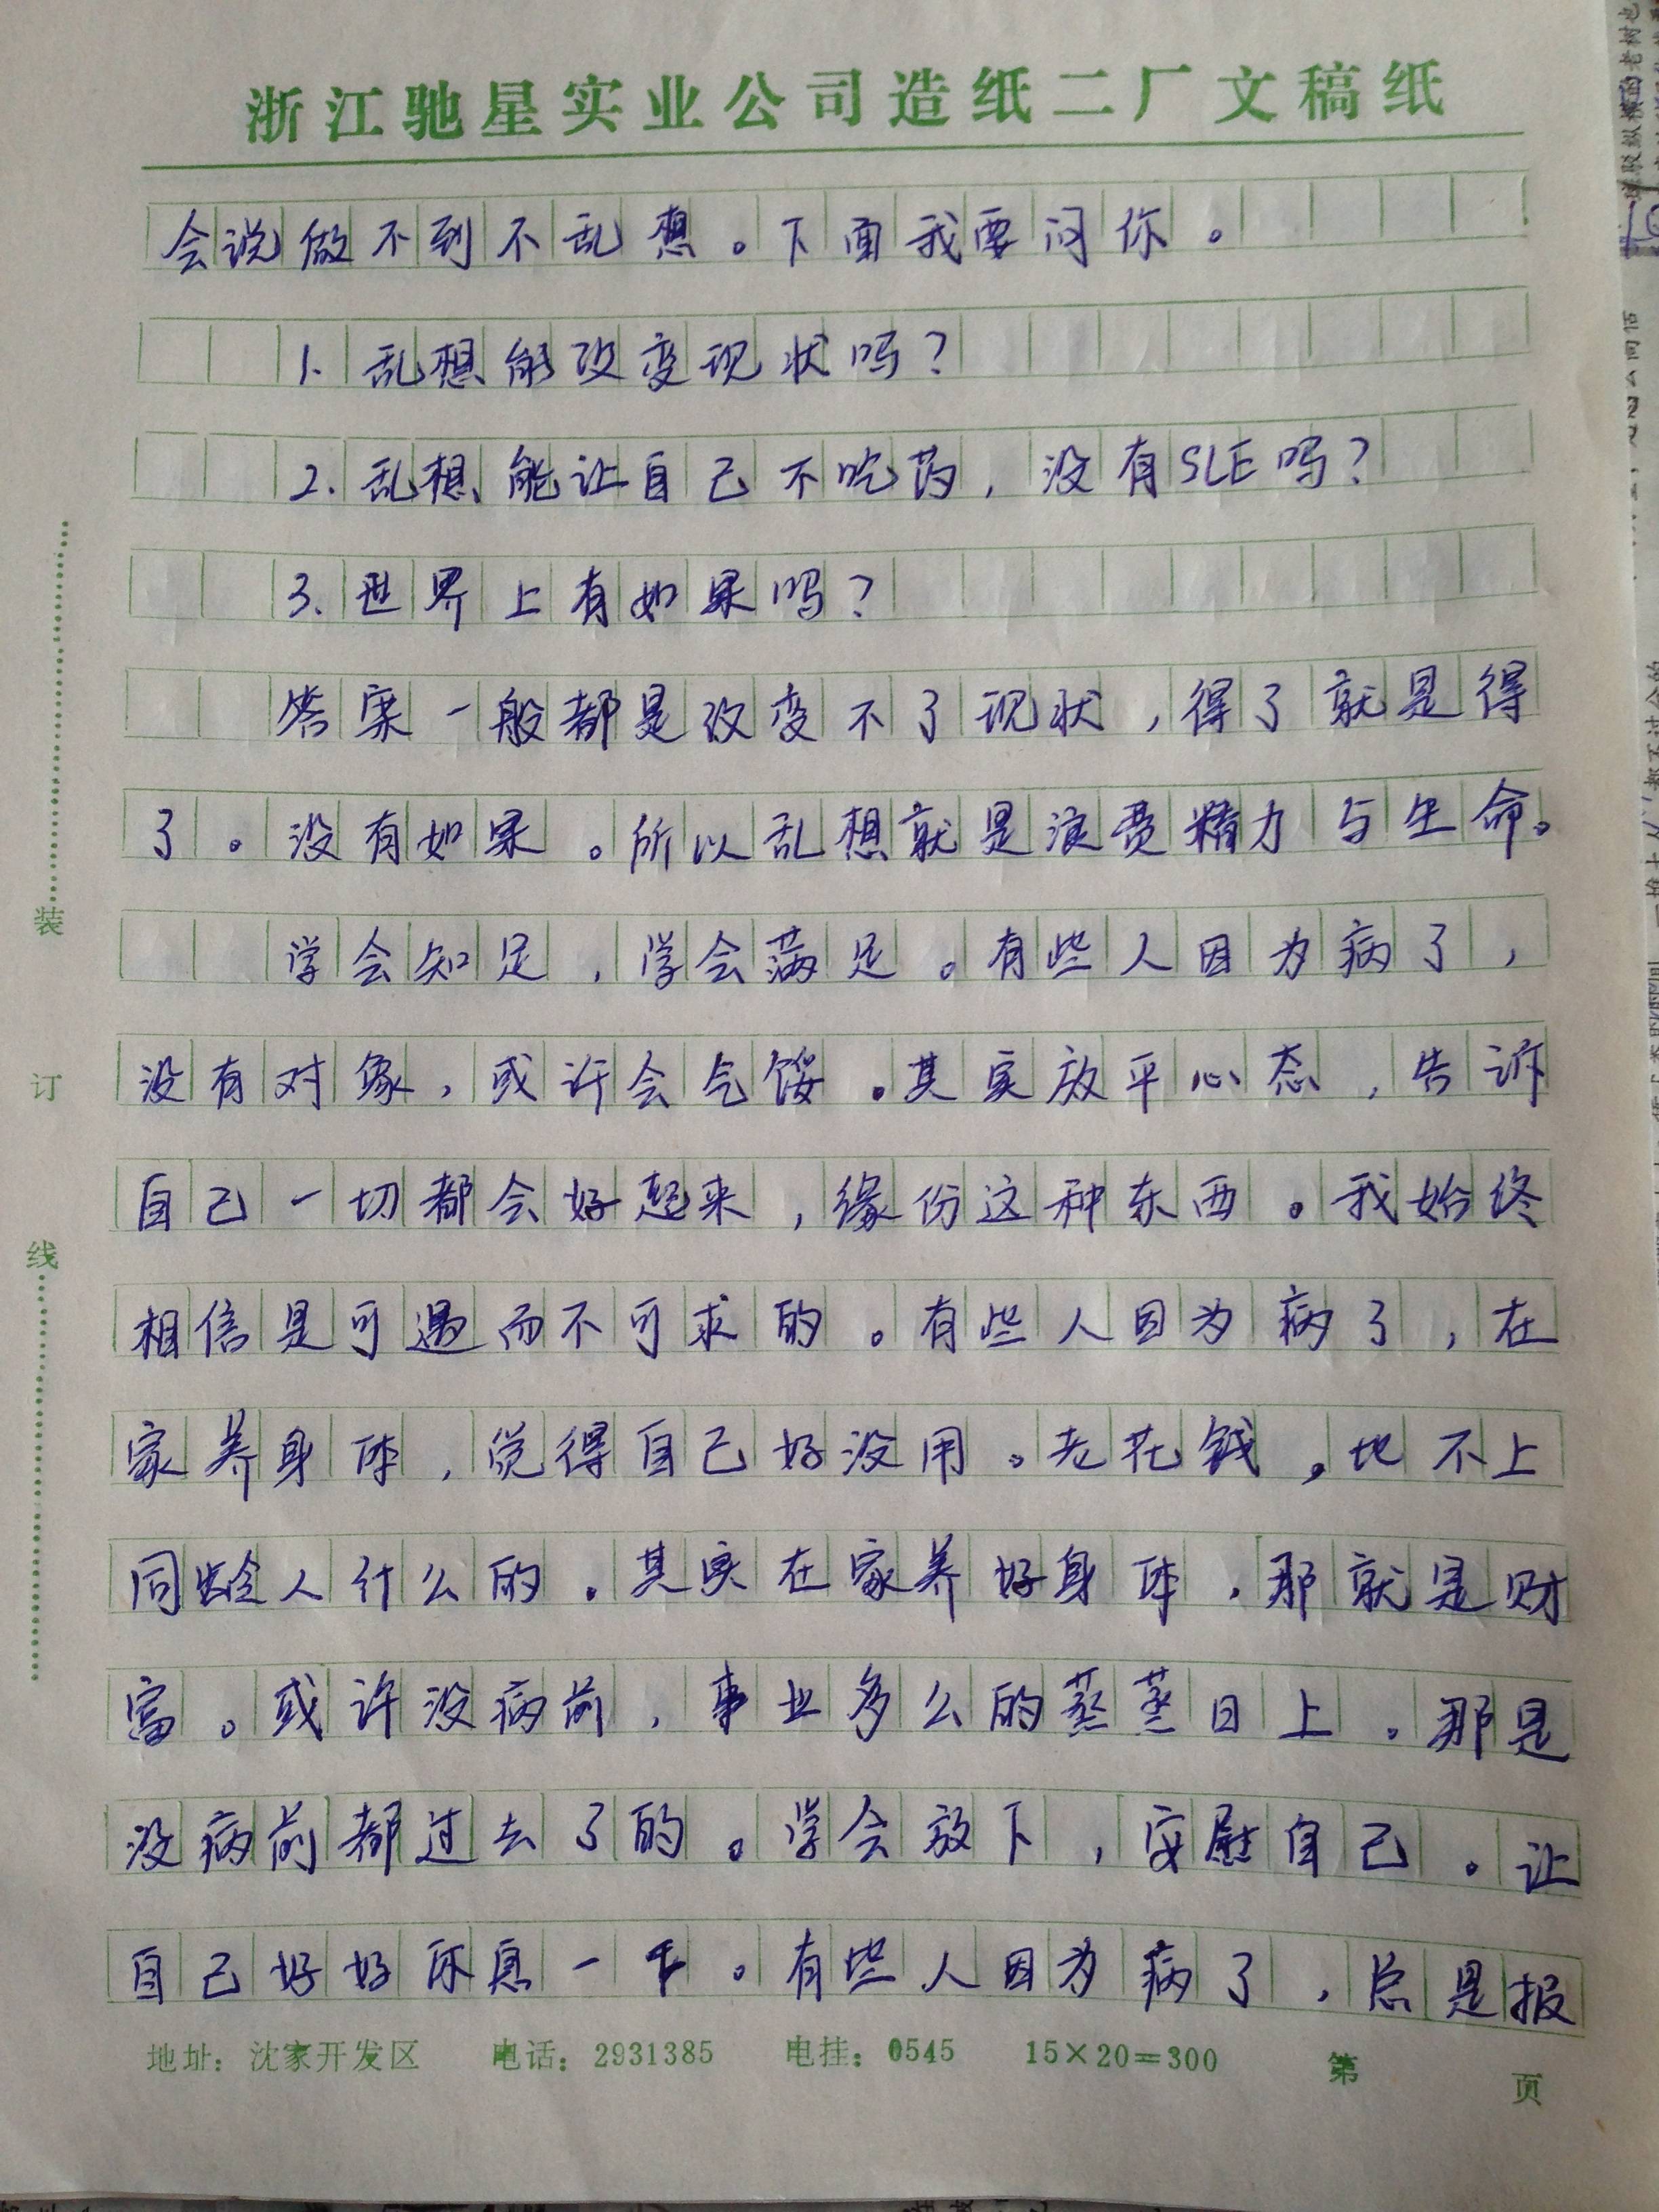 浙江驰星实业公司造纸二厂文稿纸
会说做不到不乱想。下面我要问你。
1. 乱想能改变现状吗?
2. 乱想能让自己不吃药,没有SLE吗?
3. 世界上有如果吗?
答案一般都是改变不了现状,得了就是得
了。没有如果。所以乱想就是浪费精力与生命。
学会知足,学会满足。有些人因为病了,
没有对象,或许会气馁。其实放平心态,告诉
自己一切都会好起来,缘份这种东西。我始终
相信是可遇而不可求的。有些人因为病了,在
家养身体,觉得自己好没用。老花钱,比不上
同龄人什么的。其实在家养好身体,那就是财
富。或许没病前,事业多么的蒸蒸日上。那是
没病前都过去了的。学会放下,安慰自己。让
自己好好休息一下。有些人因为病了,总是报
装
订
线
地址:沈家开发区 电话:2931385 电挂:0545 15×20=300 第 页